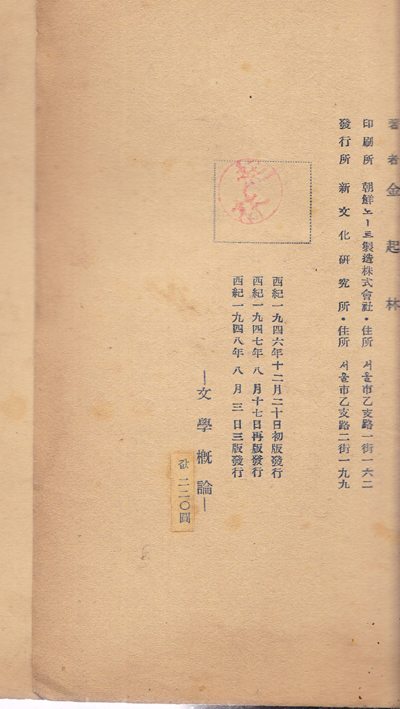 著者 金起林
印刷所 朝鮮노ー트製造株式會社・住所 서울市乙支路一街一六二
發行所 新文化硏究所・住所 서울市乙支路二街一九九
西紀一九四六年十二月二十日初版發行
西紀一九四七年八月十七日再版發行
西紀一九四八年八月三日三版發行
—文學槪論—
값 二二〇圓